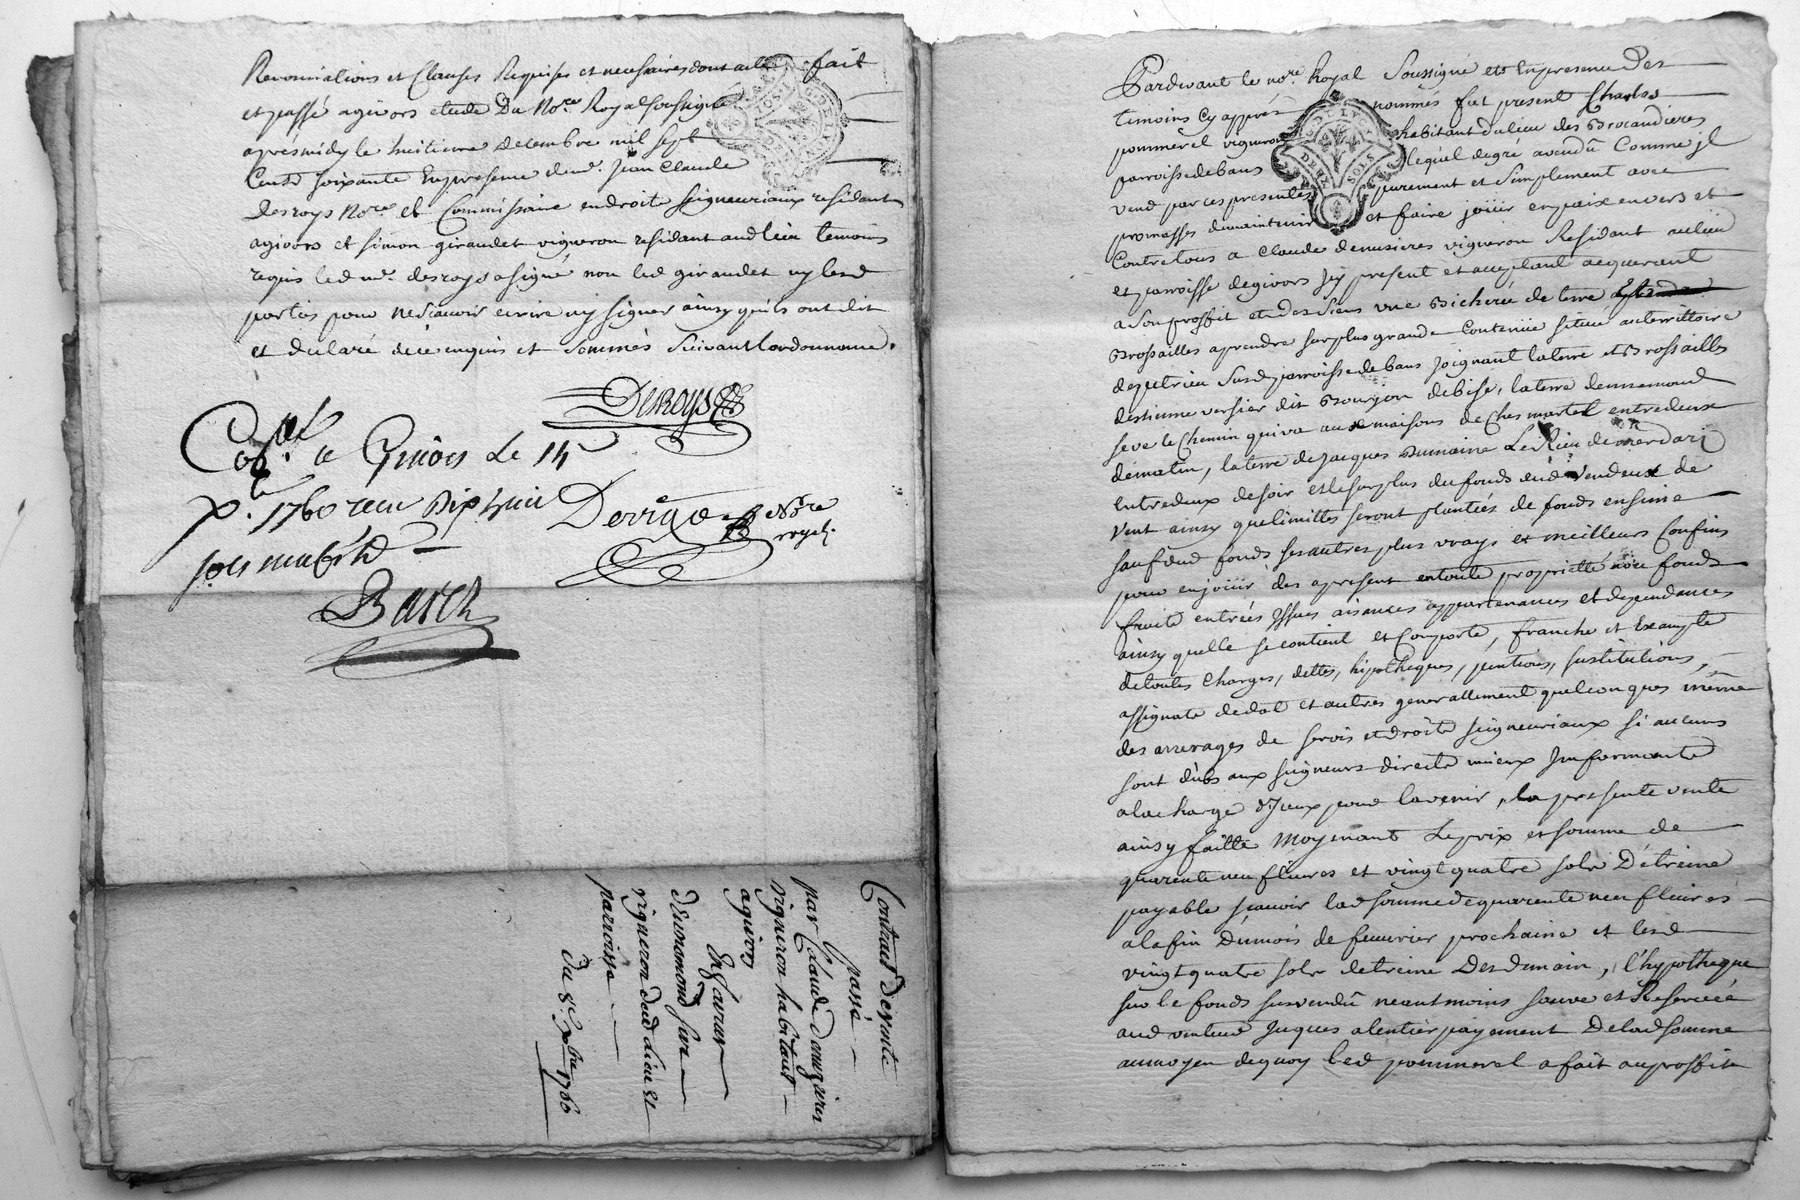 Renonciations et Clauses Requises et necessaires dont acte fait
et passé a givors etude Du No.re Royal soussigné
apres midy le huitieme decembre mil sept
Cents soixante En presence de m.r Jean Claude
Desroys No.re et Commissaire en droits seigneuriaux residant
a givors et simon giraudet vigneron residant aud lieu temoins
requis led m.r desroys a signé non led giraudet ny lesd
parties pour ne scavoir ecrire ny signer ainsy quils ont dit
et declaré de ce enquis et sommés suivant lordonnance.
Desroys
Con.lé a Givors Le 14
x.bre 1760 recu Dix huit
sols
Dervieo No.re
royal.
Barch
Contract de vente
passé
par Claude demuzieres
vigneron habitant
a givors
En faveur
d'Ennemond seve
vigneron dud lieu et
parroisse
du 8.e x.bre 1760
Pardevant le no.re Royal Soussigné et En presence Des
temoins Cy apprés nommés fut present Charles
pommerel vigneron habitant du lieu des Brocandieres
parroisse de bans lequel de gré a vendû Comme jl
vend par ces presentes purement et simplement avec
promasses de maintenir et faire joüir en paix envers et
Contre tous a Claude demusieres vigneron Residant au lieu
et parroisse de givors Jcy present et acceptant acquerant
a son proffit et des siens une Bicherée de terre
Brossailles a prendre sur plus grande Contenüe situeé au territtoire
de susd parroisse de bans joignant la terre et Brossailles
destienne versier dit Bourgon de bise, la terre dennemond
seve le Chemin qui va aux maisons de Ches martel entre deux
de matin, la terre de Jacques Dumaine Le Rieu de merdari
entre deux de soir et le surplus du fonds dud vendeur de
vent ainsy que limittes seront plantées de fonds en sime
sauf dud fonds ses autres plus vrays et meilleurs Confins
pour en joüir des a present en toute proprietté fonds
fruits entrées Jssues aisances appartenances et dependances
ainsy quelle se contient et Comporte, franche et Exampte
de toutes Charges, dettes, hipotheques, pentions, sustitutions,
assignats de dot et autres generallement quelconques même
des arrerages de servis et droits seigneuriaux si aucuns
sont dûbs aux seigneurs directs mieux Jnformants
a la charge d'Jceux pour lavenir, la presente vente
ainsy faitte Moyenant Le prix et somme de
quarente neuf livres et vingt quatre sols D'étreine
payable scavoir lad somme de quarente neuf livres
a la fin Du mois de fevrier prochains et lesd
vingt quatre sols detreine Des Demain, l'hypotheque
sur le fonds sus vendû neantmoins sauve et Reservéé
aud vendeur Jusques a lentier payement De lad somme
au moyen de quoy led pommerel a fait au proffit